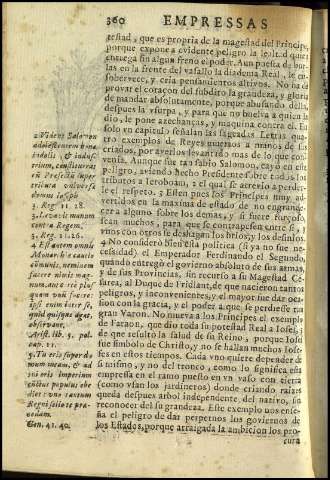 360 EMPRESSAS
gestad, que es propria de la magestad del Principe,
porque expone a evidente peligro la lealtad quien
entrega sin algun freno el poder. Aun puesta de bur-
las en la frente del vasallo la diadema Real, le en-
sobervece, y cria pensamientos altivos. No ha de
provar el coraçon del subdito la grandeza, y gloria
de mandar absolutamente, porque abusando della,
despues la usurpa, y para que no buelva a quien la
dio, le pone azechanças, y maquina contra el. En
solo un capitulo señalan las sagradas Letras qua-
tro exemplos de Reyes muertos a manos de sus
criados, por averlos levantado mas de lo que con-
venia. Aunque fue tan sabio Salomon, cayó en este
peligro, aviendo hecho Presidente sobre todos los
tributos a Ieroboan, 2 el qual se atrevio a perder-
le el respeto. 3 Esten pues los Principes muy ad-
vertidos en la maxima de estado de no engrande-
cer a alguno sobre los demas, y si fuere forçoso,
sean muchos, para que se contrapesen entre si, y
unos con otros se deshagan los brios, y los desinios.
4 No considerò bien esta politica (si ya no fue ne-
cessidad) el Emperador Ferdinando el Segundo,
quando entregó el govierno absoluto de sus armas,
y de sus Provincias, sin recurso a su Magestad Ce-
sarea, al Duque de Fridlant, de que nacieron tantos
peligros, y inconvenientes, y el mayor fue dar oca-
sion con la gracia, y el poder a que se perdiesse tan
gran Varon. No mueva a los Principes el exemplo
de Faraon, que dio toda su potestad Real a Iosef, 5
de que resultò la salud de su Reino, porque Iosef
fue simbolo de Christo, y no se hallan muchos Iose-
fes en estos tiempos. Cada uno quiere depender de
si mismo, y no del tronco, como lo significa esta
empresa en el ramo puesto en un vaso con tierra
(como usan los jardineros) donde criando raizes
queda despues arbol independiente del nativo, sin
reconocer del su grandeza. Este exemplo nos ense-
ña el peligro de dar perpetuos los goviernos de
los Estados, porque arraigada la ambicion los pro-
cura
2 Videns Salomon
adolescentem bonæ
indolis, & indus-
trium, constituerat
eum Præfectum super
tributa universæ
domus Ioseph.
3. Reg. 11. 28.
3. Levavit manum
contra Regem,
3. Reg. 11. 26.
4 Est autem omnis
Monarchiæ cautio
communis, neminem
facere nimis mag-
num, aut certe plus
quam unum facere;
ipsi enim inter se,
quid quisque agat,
observant.
Arist. lib. 5. pol.
cap. 11.
5. Tu eris super do-
mum meam, & ad
tui oris imperium
cunctus populus obe-
diet: uno tantum
Regni solio te præ-
cedam.
Gen. 41. 40.